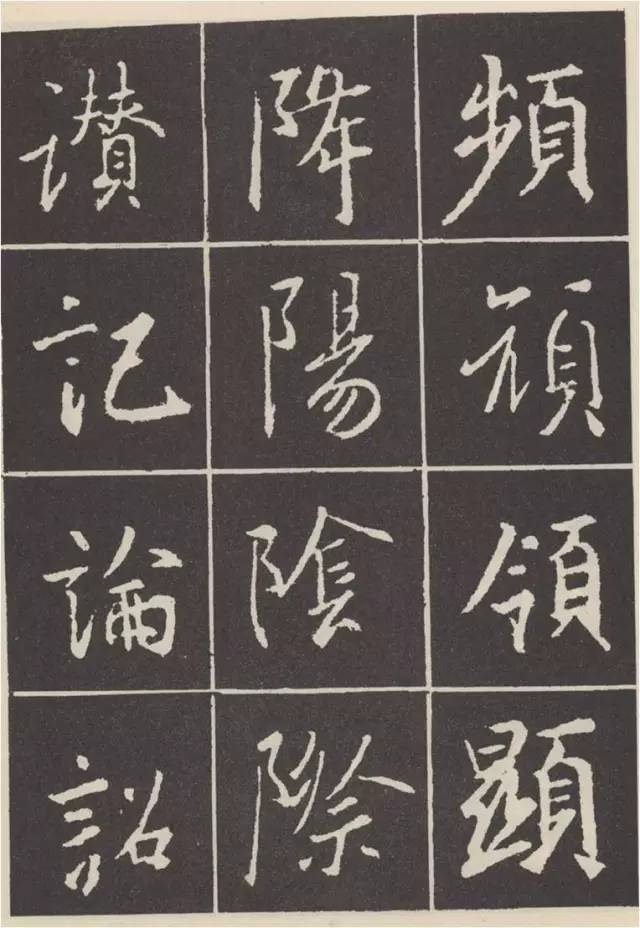 頻頑領顯
降陽陰際
讃記論詔